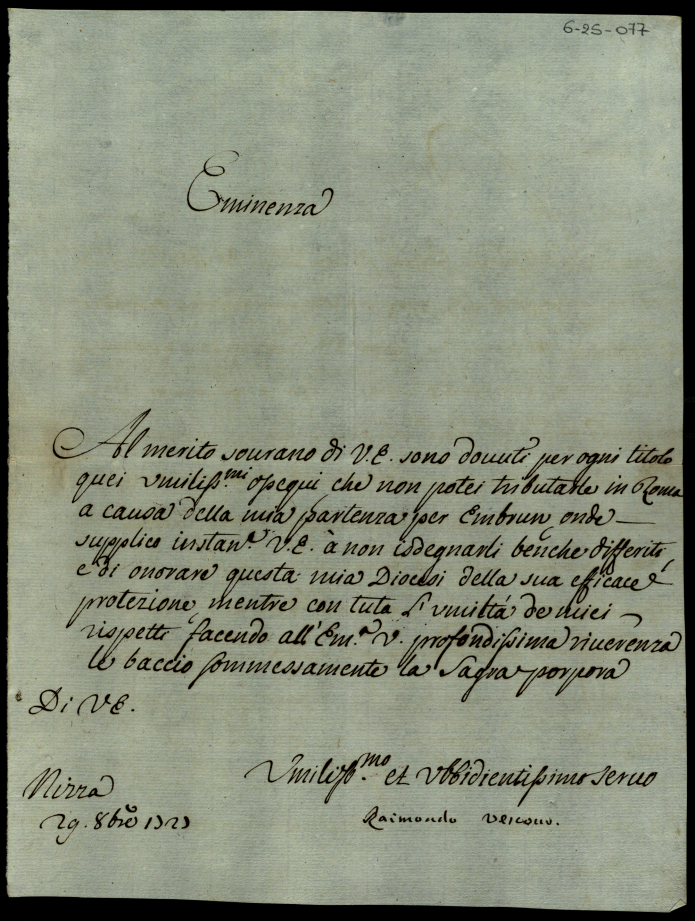 6-25-077
Eminenza
Al merito sourano di V.E. sono douuti per ogni titolo
quei vmiliss.mi ossequi che non potei tributarle in Roma
a causa della mia partenza per Embrun, onde
supplico instan.e V.E. à non isdegnarli benche differiti,
e di onorare questa mia Diocesi della sua efficace
protezione, mentre con tuta l'vmiltá de miei
rispetti facendo all'Em.a V. profondissima riuerenza
le baccio sommessamente la sagra porpora
Di V.E.
Vmiliss.mo et vbbidientissimo seruo
Nizza
29. 8bre 1727
Raimondo vescouo.